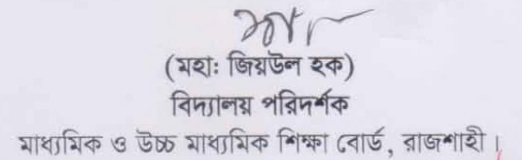 (মহাঃ জিয়উল হক)
বিদ্যালয় পরিদর্শক
মাধ্যমিক ও উচ্চ মাধ্যমিক শিক্ষা বোর্ড, রাজশাহী।